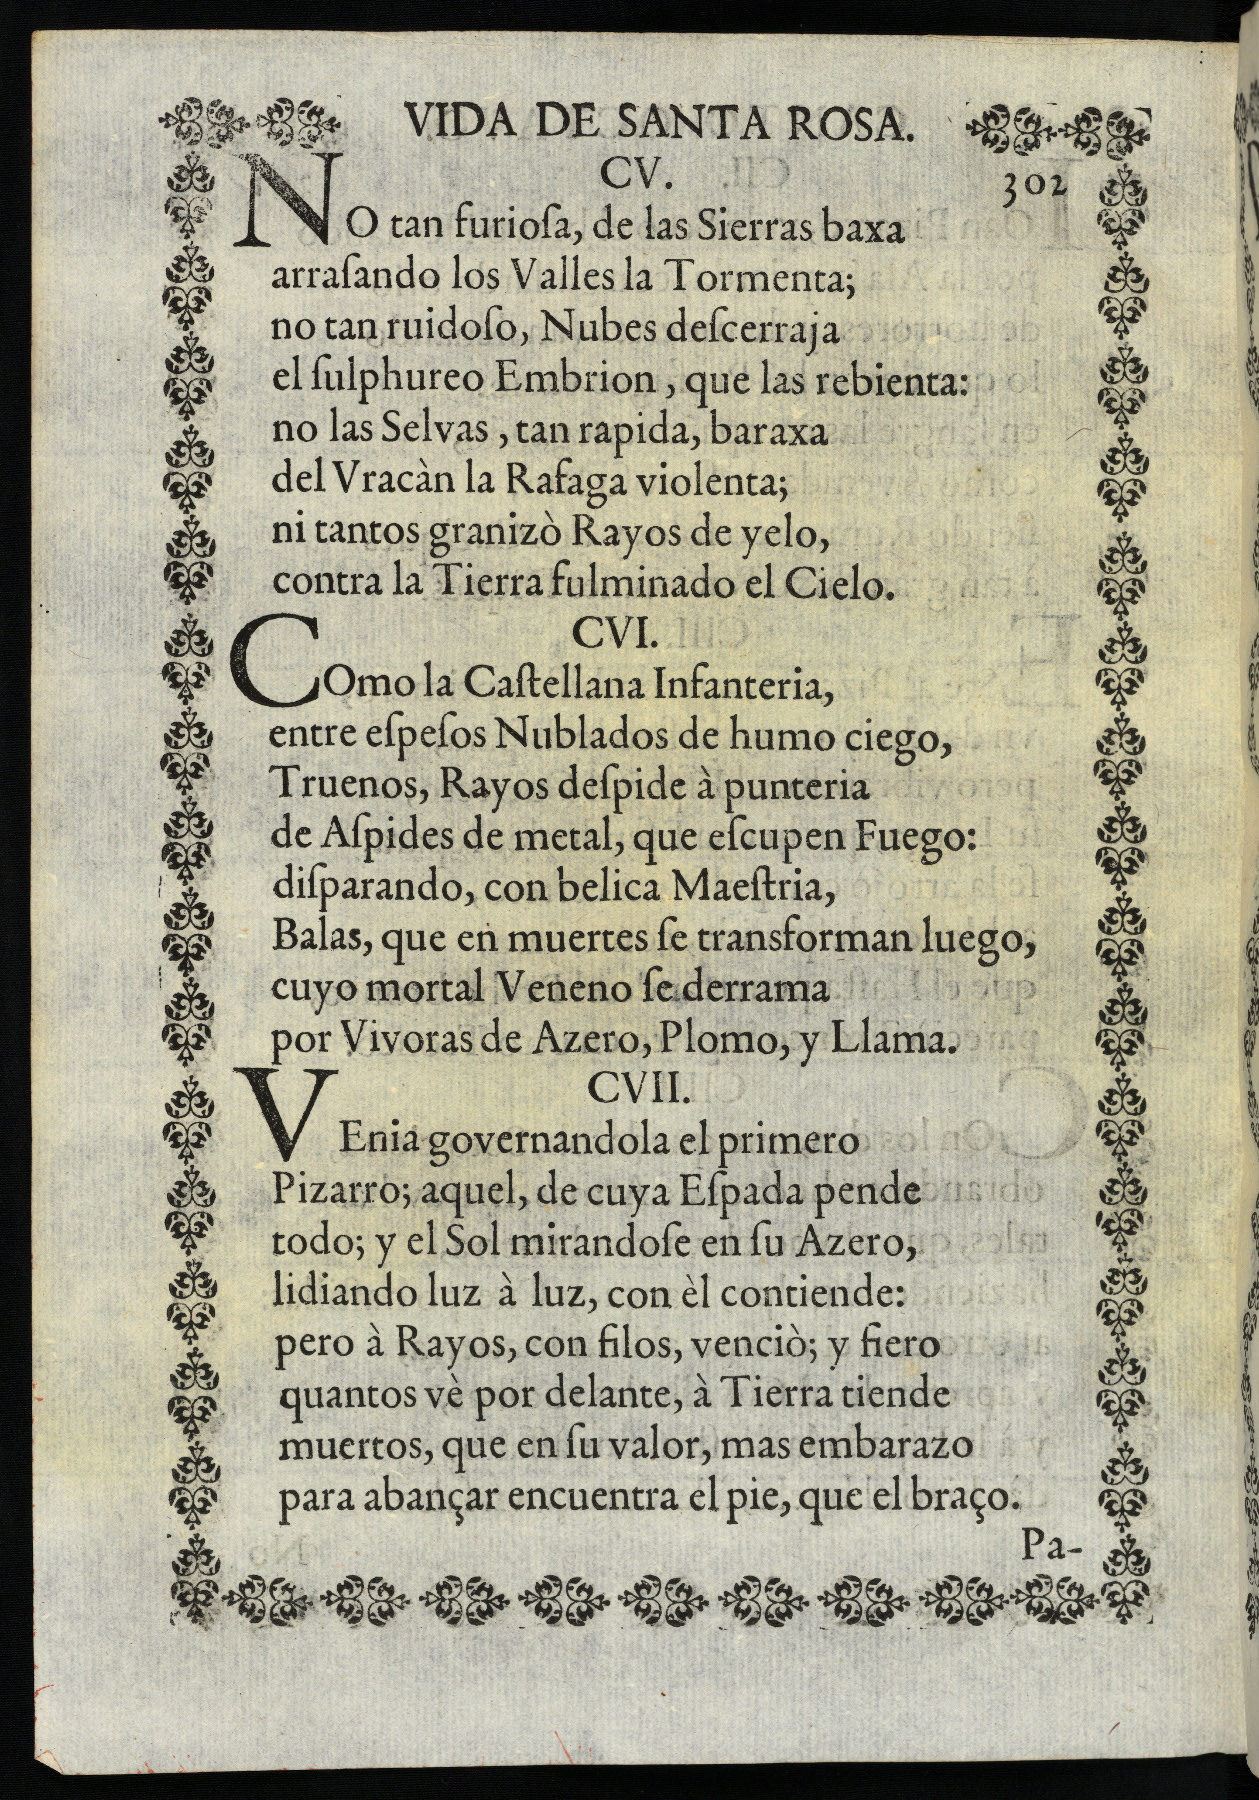 VIDA DE SANTA ROSA.
CV.
302
NO tan furioſa, de las Sierras baxa
arraſando los Valles la Tormenta;
no tan ruidoſo, Nubes deſcerraja
el ſulphureo Embrion, que las rebienta:
no las Selvas, tan rapida, baraxa
del Vracàn la Rafaga violenta;
ni tantos granizò Rayos de yelo,
contra la Tierra fulminado el Cielo.
CVI.
COmo la Caſtellana Infanteria,
entre eſpeſos Nublados de humo ciego,
Truenos, Rayos deſpide à punteria
de Aſpides de metal, que eſcupen Fuego:
diſparando, con belica Maeſtria,
Balas, que en muertes ſe transforman luego,
cuyo mortal Veneno ſe derrama
por Vivoras de Azero, Plomo, y Llama.
CVII.
VEnia governandola el primero
Pizarro; aquel, de cuya Eſpada pende
todo; y el Sol mirandoſe en ſu Azero,
lidiando luz à luz, con èl contiende:
pero à Rayos, con filos, venciò; y fiero
quantos vè por delante, à Tierra tiende
muertos, que en ſu valor, mas embarazo
para abançar encuentra el pie, que el braço.
Pa-